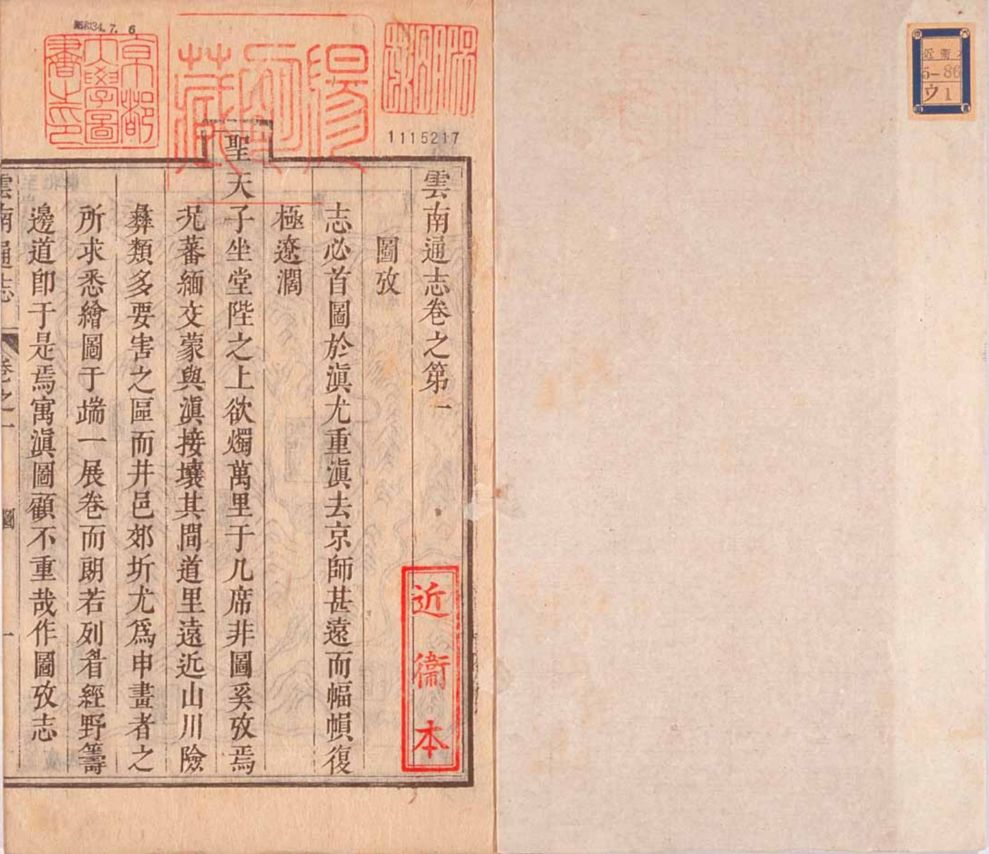 近衛
5-86
ウ1
昭和34.7.6
京都大學圖書之印
陽明藏
1115217
雲南通志卷之第一
圖攷
志必首圖於滇尤重滇去京師甚遠而幅幀復
極遼濶
聖天子坐堂陛之上欲燭萬里于几席非圖奚攷焉
况蕃緬交蒙與滇接壤其間道里遠近山川險
彝類多要害之區而井邑郊圻尤爲申畫者之
所求悉繪圖于端一展卷而朗若列眉經野籌
邊道卽于是焉寓滇圖顧不重哉作圖攷志
雲南通志
卷之一
圖
一
近衞本